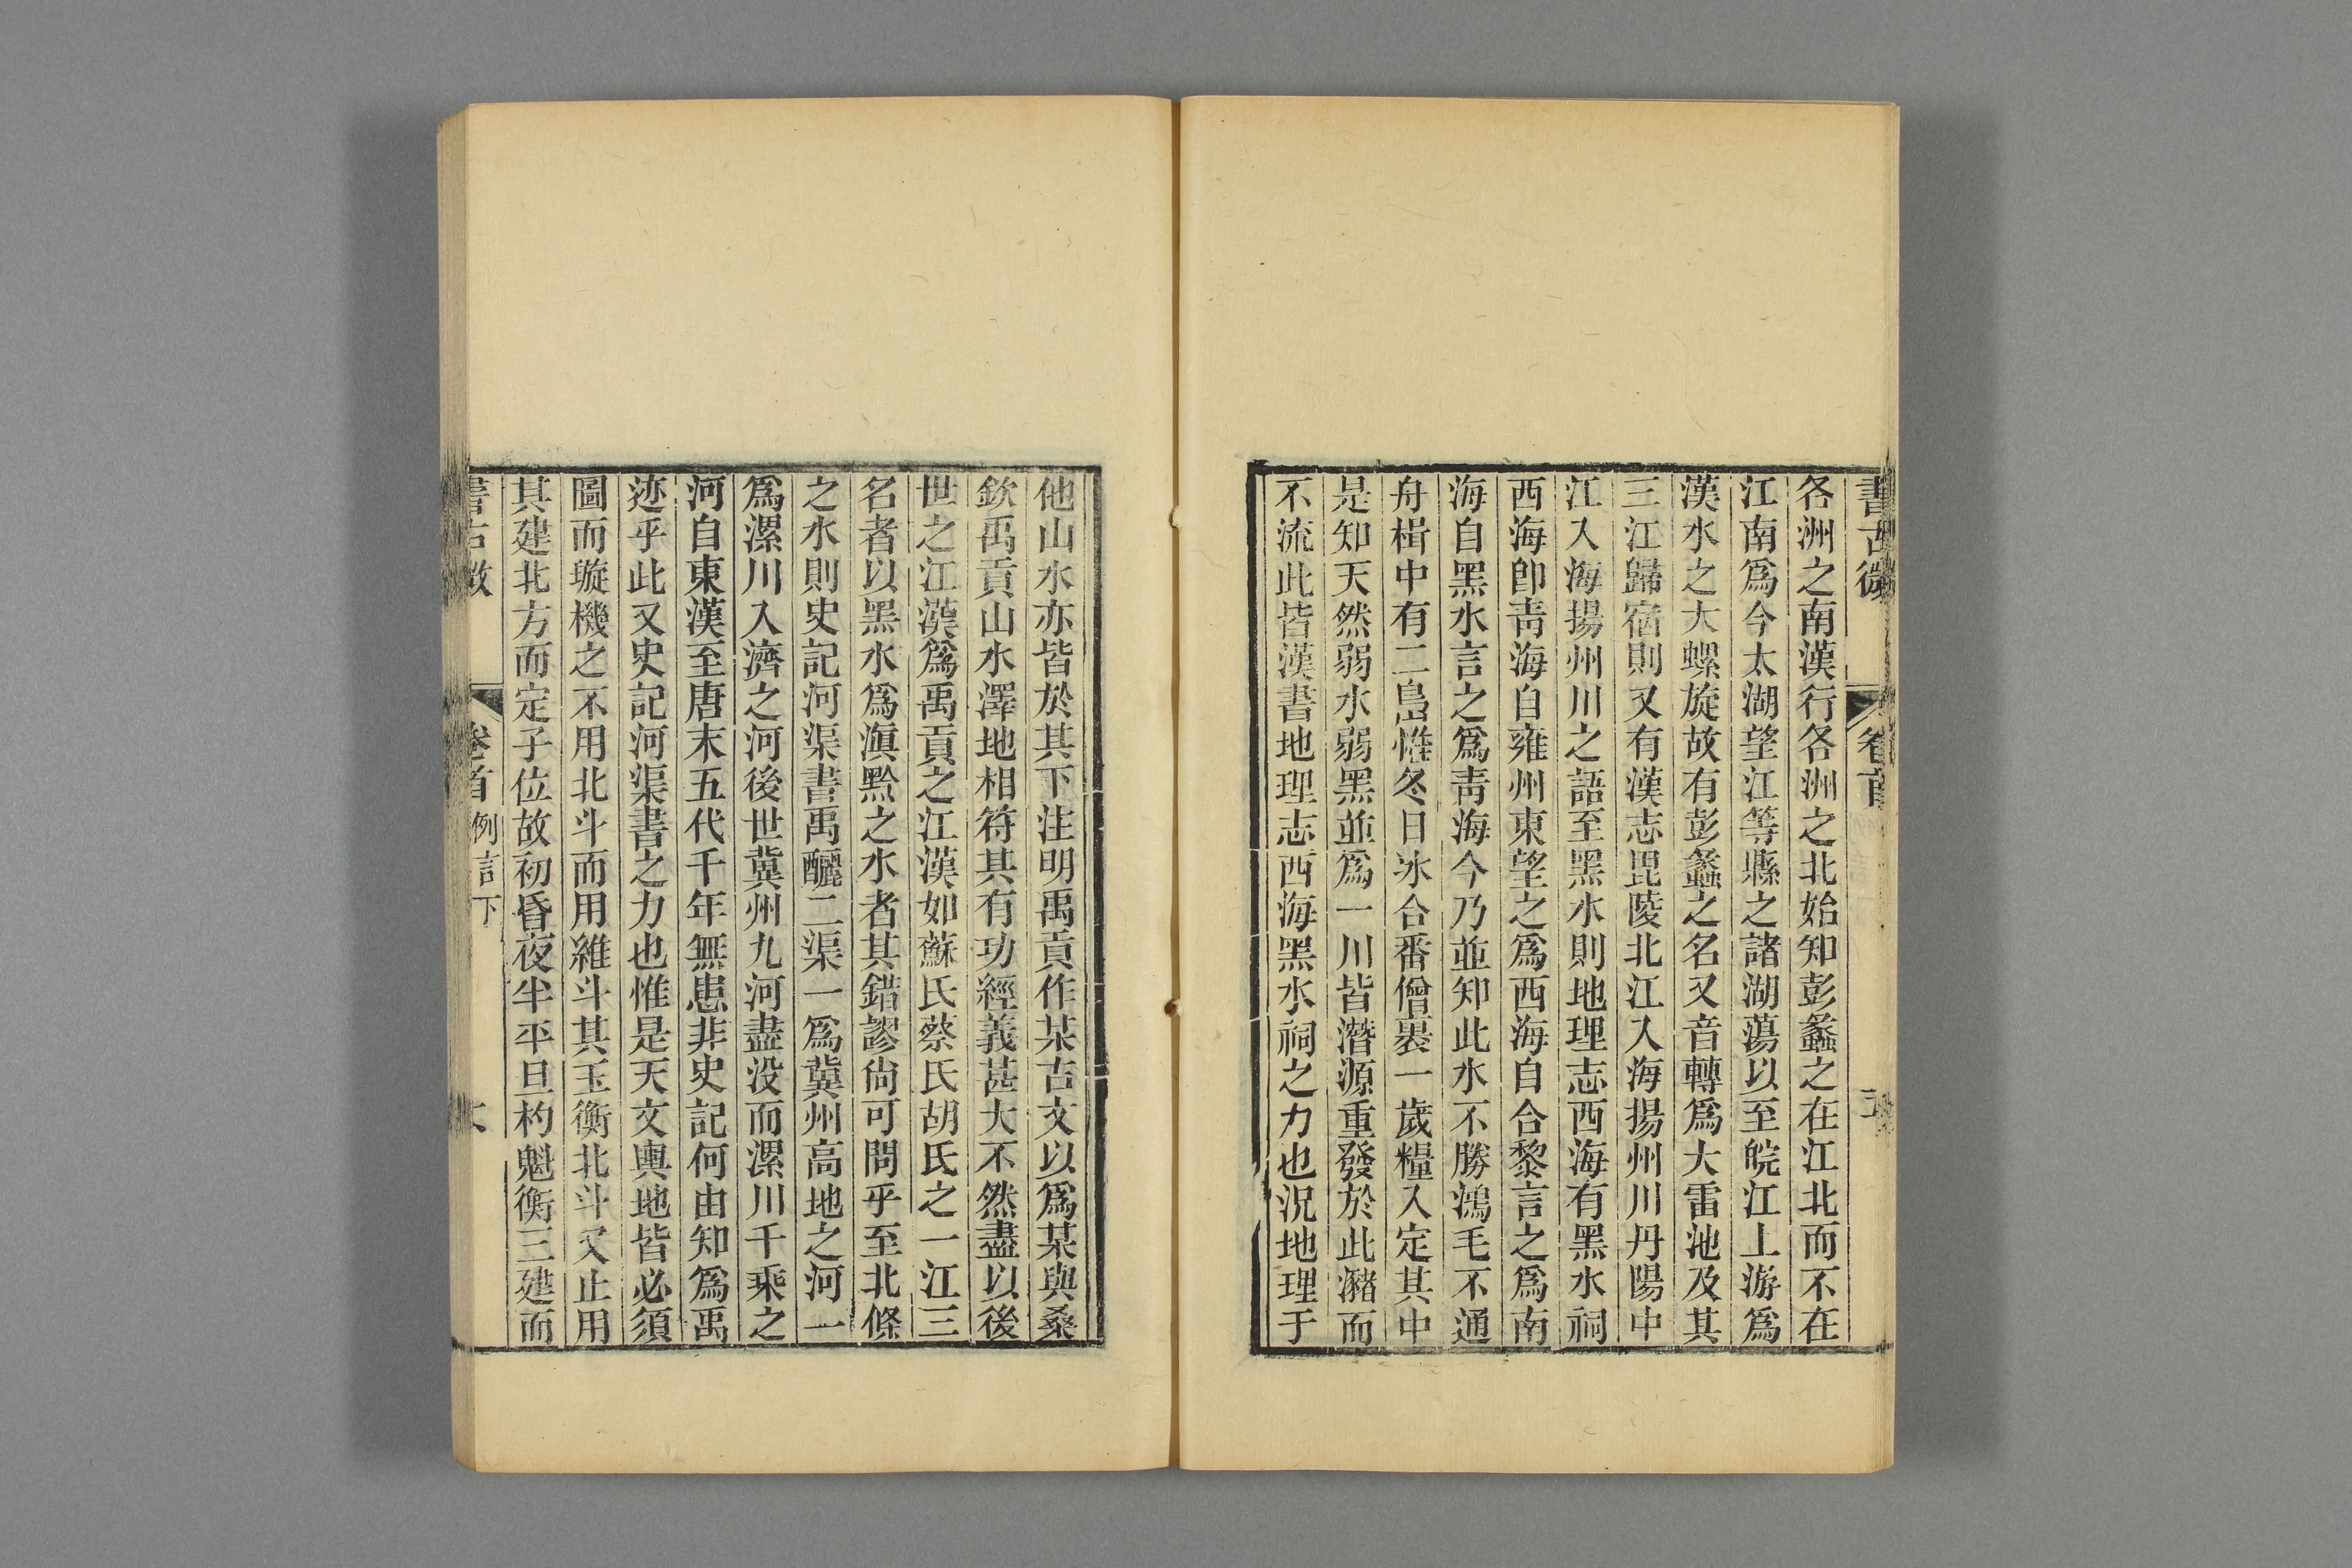 書古微
卷首
各洲之南漢行各洲之北始知彭蠡之在江北而不在
江南爲今太湖望江等縣之諸湖蕩以至皖江上游爲
漢水之大螺旋故有彭蠡之名又音轉爲大雷池及其
三江歸宿則又有漢志毘陵北江入海揚州川丹陽中
江入海揚州川之語至黑水則地理志西海有黑水祠
西海卽靑海自雍州東望之爲西海自合黎言之爲南
海自黑水言之爲靑海今乃並知此水不勝鴻毛不通
舟楫中有二島惟冬日冰合番僧裹一歲糧入定其中
是知天然弱水弱黑並爲一川皆潛源重發於此瀦而
不流此皆漢書地理志西海黑水祠之力也況地理于
他山水亦皆於其下注明禹貢作某古文以爲某與桑
欽禹貢山水澤地相符其有功經義甚大不然盡以後
世之江漢爲禹貢之江漢如蘇氏蔡氏胡氏之一江三
名者以黑水爲滇黔之水者其錯謬尙可問乎至北條
之水則史記河渠書禹釃二渠一爲冀州高地之河一
爲漯川入濟之河後世冀州九河盡没而漯川千乘之
河自東漢至唐末五代千年無患非史記何由知爲禹
迹乎此又史記河渠書之力也惟是天文輿地皆必須
圖而璇機之不用北斗而用維斗其玉衡北斗又止用
其建北方而定子位故初昏夜半平旦杓魁衡三建而
書古微
卷首 例言下